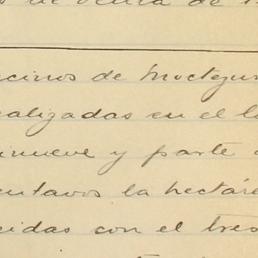 de venta de
cinos de Moctezu
ealizadas en el l
inueve y parte
entavos la hectáre
cidas con el tres